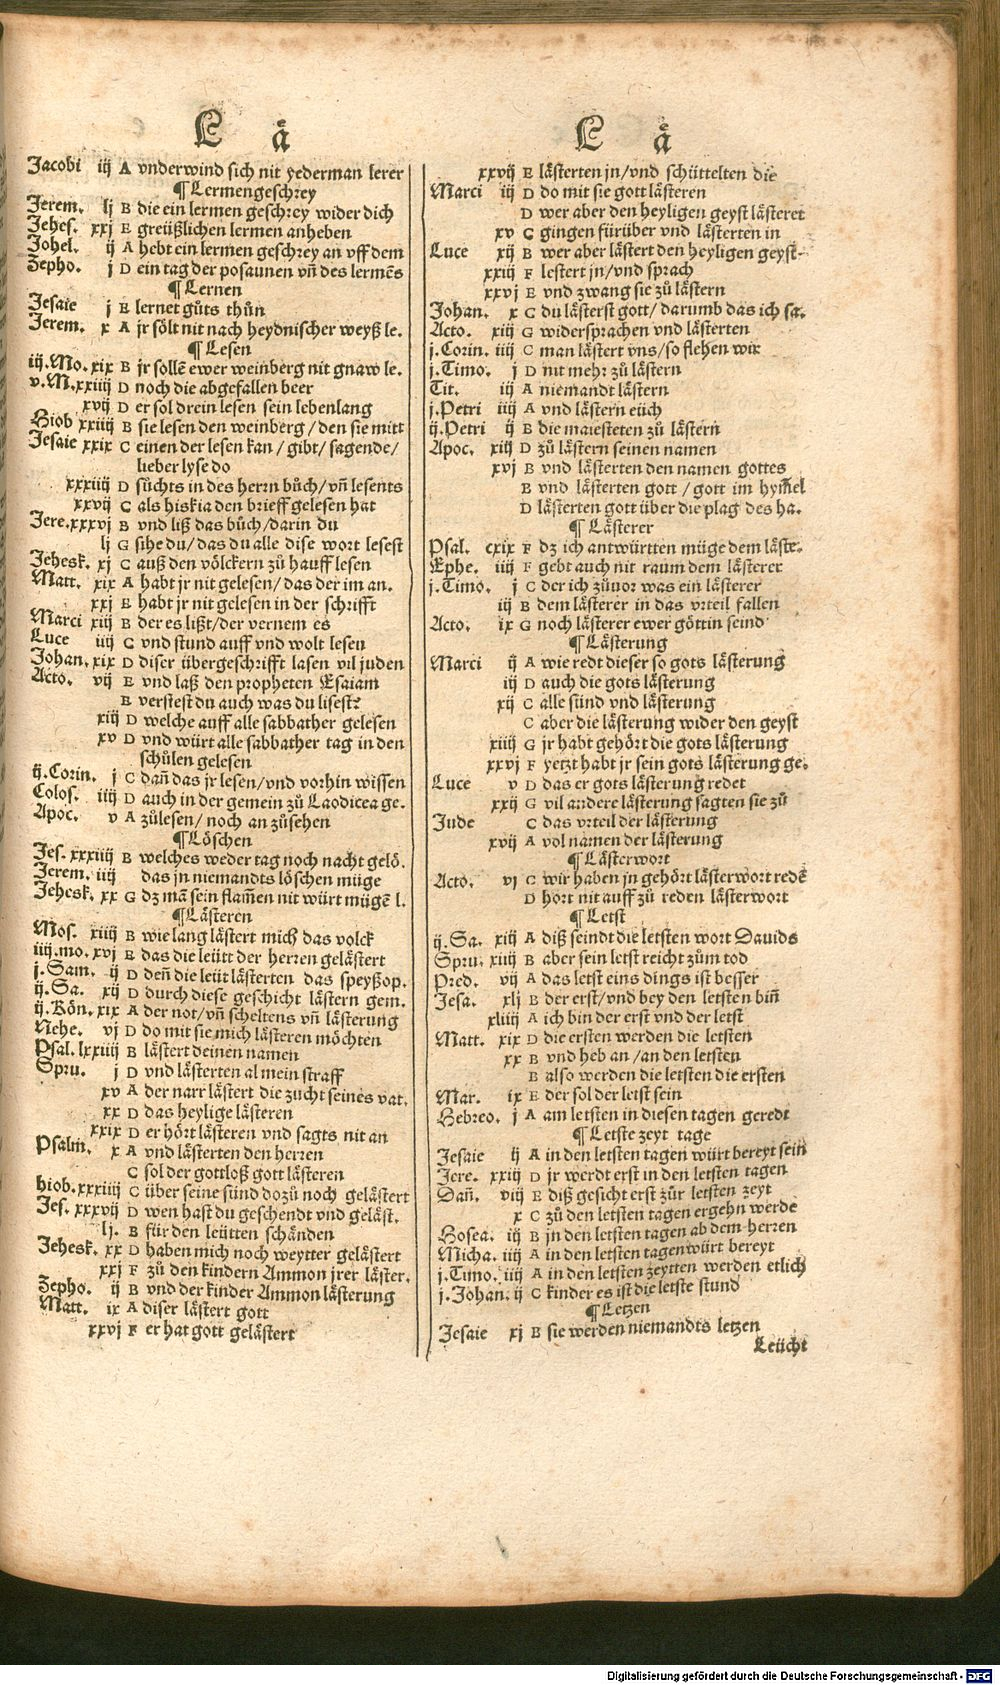 L ä
Jacobi iij A vnderwind sich nit yederman lerer
¶ Lermengeschrey
Jerem. lj B die ein lermen geschrey wider dich
Jehes. xxj E greüßlichen lermen anheben
Johel. ij A hebt ein lermen geschrey an vff dem
Zepho. j D ein tag der posaunen vñ des lermēs
¶ Lernen
Jesaie j E lernet gůts thůn
Jerem. x A jr sölt nit nach heydnischer weyß le.
¶ Lesen
iij.Mo. xix B jr sollē ewer weinberg nit gnaw le.
v.M. xxiiij D noch die abgefallen beer
xvij D er sol drein lesen sein lebenlang
Hiob xxiiij B sie lesen den weinberg / den sie mitt
Jesaie xxix C einen der lesen kan / gibt / sagende /
lieber lyse do
xxxiiij D sůchts in des herrn bůch / vñ lesents
xxvij C als hiskia den brieff gelesen hat
Jere. xxxvj B vnd liß das bůch / darin du
lj G sihe du / das du alle dise wort lesest
Jehesk. xj C auß den völckern zů hauff lesen
Matt. xix A habt jr nit gelesen / das der im an.
xxj E habt jr nit gelesen in der schrifft
Marci xiij B der es lißt / der vernem es
Luce iiij C vnd stund auff vnd wolt lesen
Johan. xix D diser übergeschrifft lasen vil juden
Acto. vij E vnd laß den propheten Esaiam
E verstest du auch was du lisest?
xiij D welche auff alle sabbather gelesen
xv D vnd würt alle sabbather tag in den
schůlen gelesen
ij.Corin. j C dañ das jr lesen / vnd vorhin wissen
Colos. iiij D auch in der gemein zů Laodicea ge.
Apoc. v A zůlesen / noch an zůsehen
¶ Löschen
Jes. xxxiiij B welches weder tag noch nacht gelö.
Jerem. iiij das jn niemandts löschen müge
Jehesk. xx G dz mā sein flam̄en nit würt mügē l.
¶ Lästeren
Mos. xiiij B wie lang lästert mich das volck
iiij.mo. xvj E das die leütt der herren gelästert
j.Sam. ij D deñ die leüt lästerten das speyßop.
ij.Sa. xij D durch diese geschicht lästern gem.
ij.Kön. xix A der not / vñ scheltens vñ lästerung
Nehe. vj D do mit sie mich lästeren möchten
Psal. lxxiiij B lästert deinen namen
Spru. j D vnd lästerten al mein straff
xv A der narr lästert die zucht seines vat.
xx D das heylige lästeren
xxix D er hört lästeren vnd sagts nit an
Psalm. x A vnd lästerten den herren
C sol der gottloß gott lästeren
hiob. xxxiiij C über seine sünd dozů noch gelästert
Jes. xxxvij D wen hast du geschendt vnd geläst.
lj. B für den leütten schänden
Jehesk. xx D haben mich noch weytter gelästert
xxj F zů den kindern Ammon jrer läster.
Zepho. ij B vnd der kinder Ammon lästerung
Matt. ix A diser lästert gott
xxvj F er hat gott gelästert
L ä
xxvij E lästerten jn / vnd schüttelten die
Marci iij D do mit sie gott lästeren
D wer aber den heyligen geyst lästeret
xv G gingen fürüber vnd lästerten in
Luce xij B wer aber lästert den heyligen geyst
xxiij F lestert jn / vnd sprach
xxvj E vnd zwang sie zů lästern
Johan. x G du lästerst gott / darumb das ich sa.
Acto. xiij G widersprachen vnd lästerten
j.Corin. iiij C man lästert vns / so flehen wir
j.Timo. j D nit mehr zů lästern
Tit. iij A niemandt lästern
j.Petri iiij A vnd lästern eüch
ij.Petri ij B die maiesteten zů lästern
Apoc. xiij D zů lästern seinen namen
xvj B vnd lästerten den namen gottes
B vnd lästerten gott / gott im hym̄el
D lästerten gott über die plag des ha.
¶ Lästerer
Psal. cxix F dz ich antwürtten müge dem läste.
Ephe. iiij F gebt auch nit raum dem lästerer
j.Timo. j C der ich zůuor was ein lästerer
iij B dem lästerer in das vrteil fallen
Acto. ix G noch lästerer ewer göttin seind
¶ Lästerung
Marci ij A wie redt dieser so gots lästerung
iij D auch die gots lästerung
xij C alle sünd vnd lästerung
C aber die lästerung wider den geyst
xiiij G jr habt gehört die gots lästerung
xxvj F yetzt habt jr sein gots lästerung ge.
Luce v D das er gots lästerung redet
xxij G vil andere lästerung sagten sie zů
Jude C das vrteil der lästerung
xvij A vol namen der lästerung
¶ Lästerwort
Acto. vj C wir haben jn gehört lästerwort redē
D hört nit auff zů reden lästerwort
¶ Letst
ij.Sa. xiij A diß seindt die letsten wort Dauids
Spru. xiiij B aber sein letst reicht zům tod
Pred. vij A das letst eins dings ist besser
Jesa. xlj B der erst / vnd bey den letsten biñ
xliiij A ich bin der erst vnd der letst
Matt. xix D die ersten werden die letsten
xx B vnd heb an / an den letsten
B also werden die letsten die ersten
Mar. ix E der sol der letst sein
Hebreo. j A am letsten in diesen tagen geredt
¶ Letste zeyt tage
Jesaie ij A in den letsten tagen würt bereyt sein
Jere. xxiij D jr werdt erst in den letsten tagen
Dañ. viij E diß gesicht erst zůr letsten zeyt
x C zů den letsten tagen ergehn werde
Hosea. iij B jn den letsten tagen ab dem herren
Micha. iiij A in den letsten tagen würt bereyt
j.Timo. iiij A in den letsten zeytten werden etlich
j.Johan. ij C kinder es ist die letste stund
¶ Letzen
Jesaie xj B sie werden niemandts letzen
Leücht
Digitalisierung gefördert durch die Deutsche Forschungsgemeinschaft - DFG